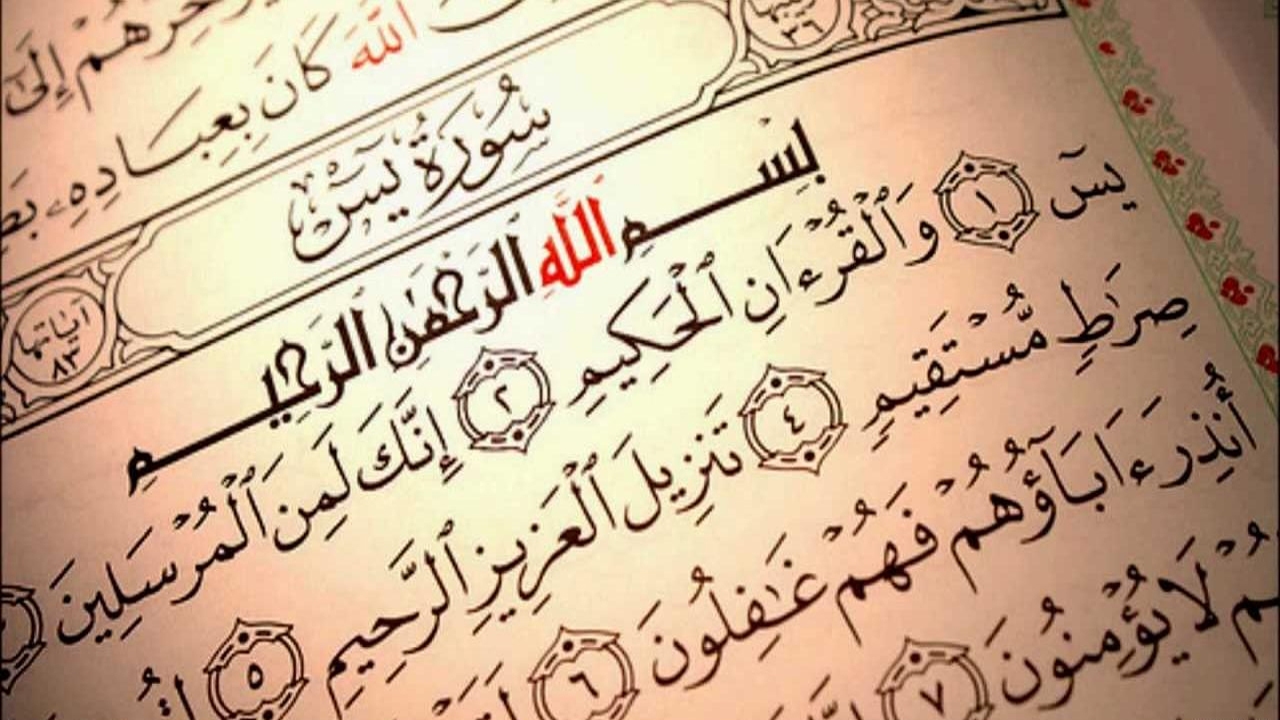 إِلَىٰ
ٱللَّهَ كَانَ بِعِبَادِهِۦ
٣٦
سُورَةُ يسٓ
آيَاتُهَا ٨٣
بِسْمِ ٱللَّهِ ٱلرَّحْمَٰنِ ٱلرَّحِيمِ
يسٓ ١ وَٱلْقُرْءَانِ ٱلْحَكِيمِ ٢ إِنَّكَ لَمِنَ ٱلْمُرْسَلِينَ
صِرَٰطٍ مُّسْتَقِيمٍ ٤ تَنزِيلَ ٱلْعَزِيزِ ٱلرَّحِيمِ ٥
أُنذِرَ ءَابَآؤُهُمْ فَهُمْ غَٰفِلُونَ ٦
لَا يُؤْمِنُونَ ٧